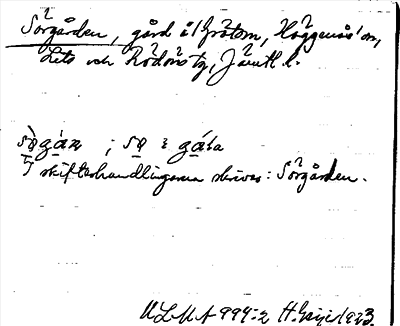 Sörgården, gård i Grötom, Häggenås' sn,
Lits och Rödöns tg, Jämtl. l.
sö̀gáɳ ; sö i gáɭa
I skifteshandlingarna skrives: Sörgården.
ULMA 999:2 H. Geijer 1923.